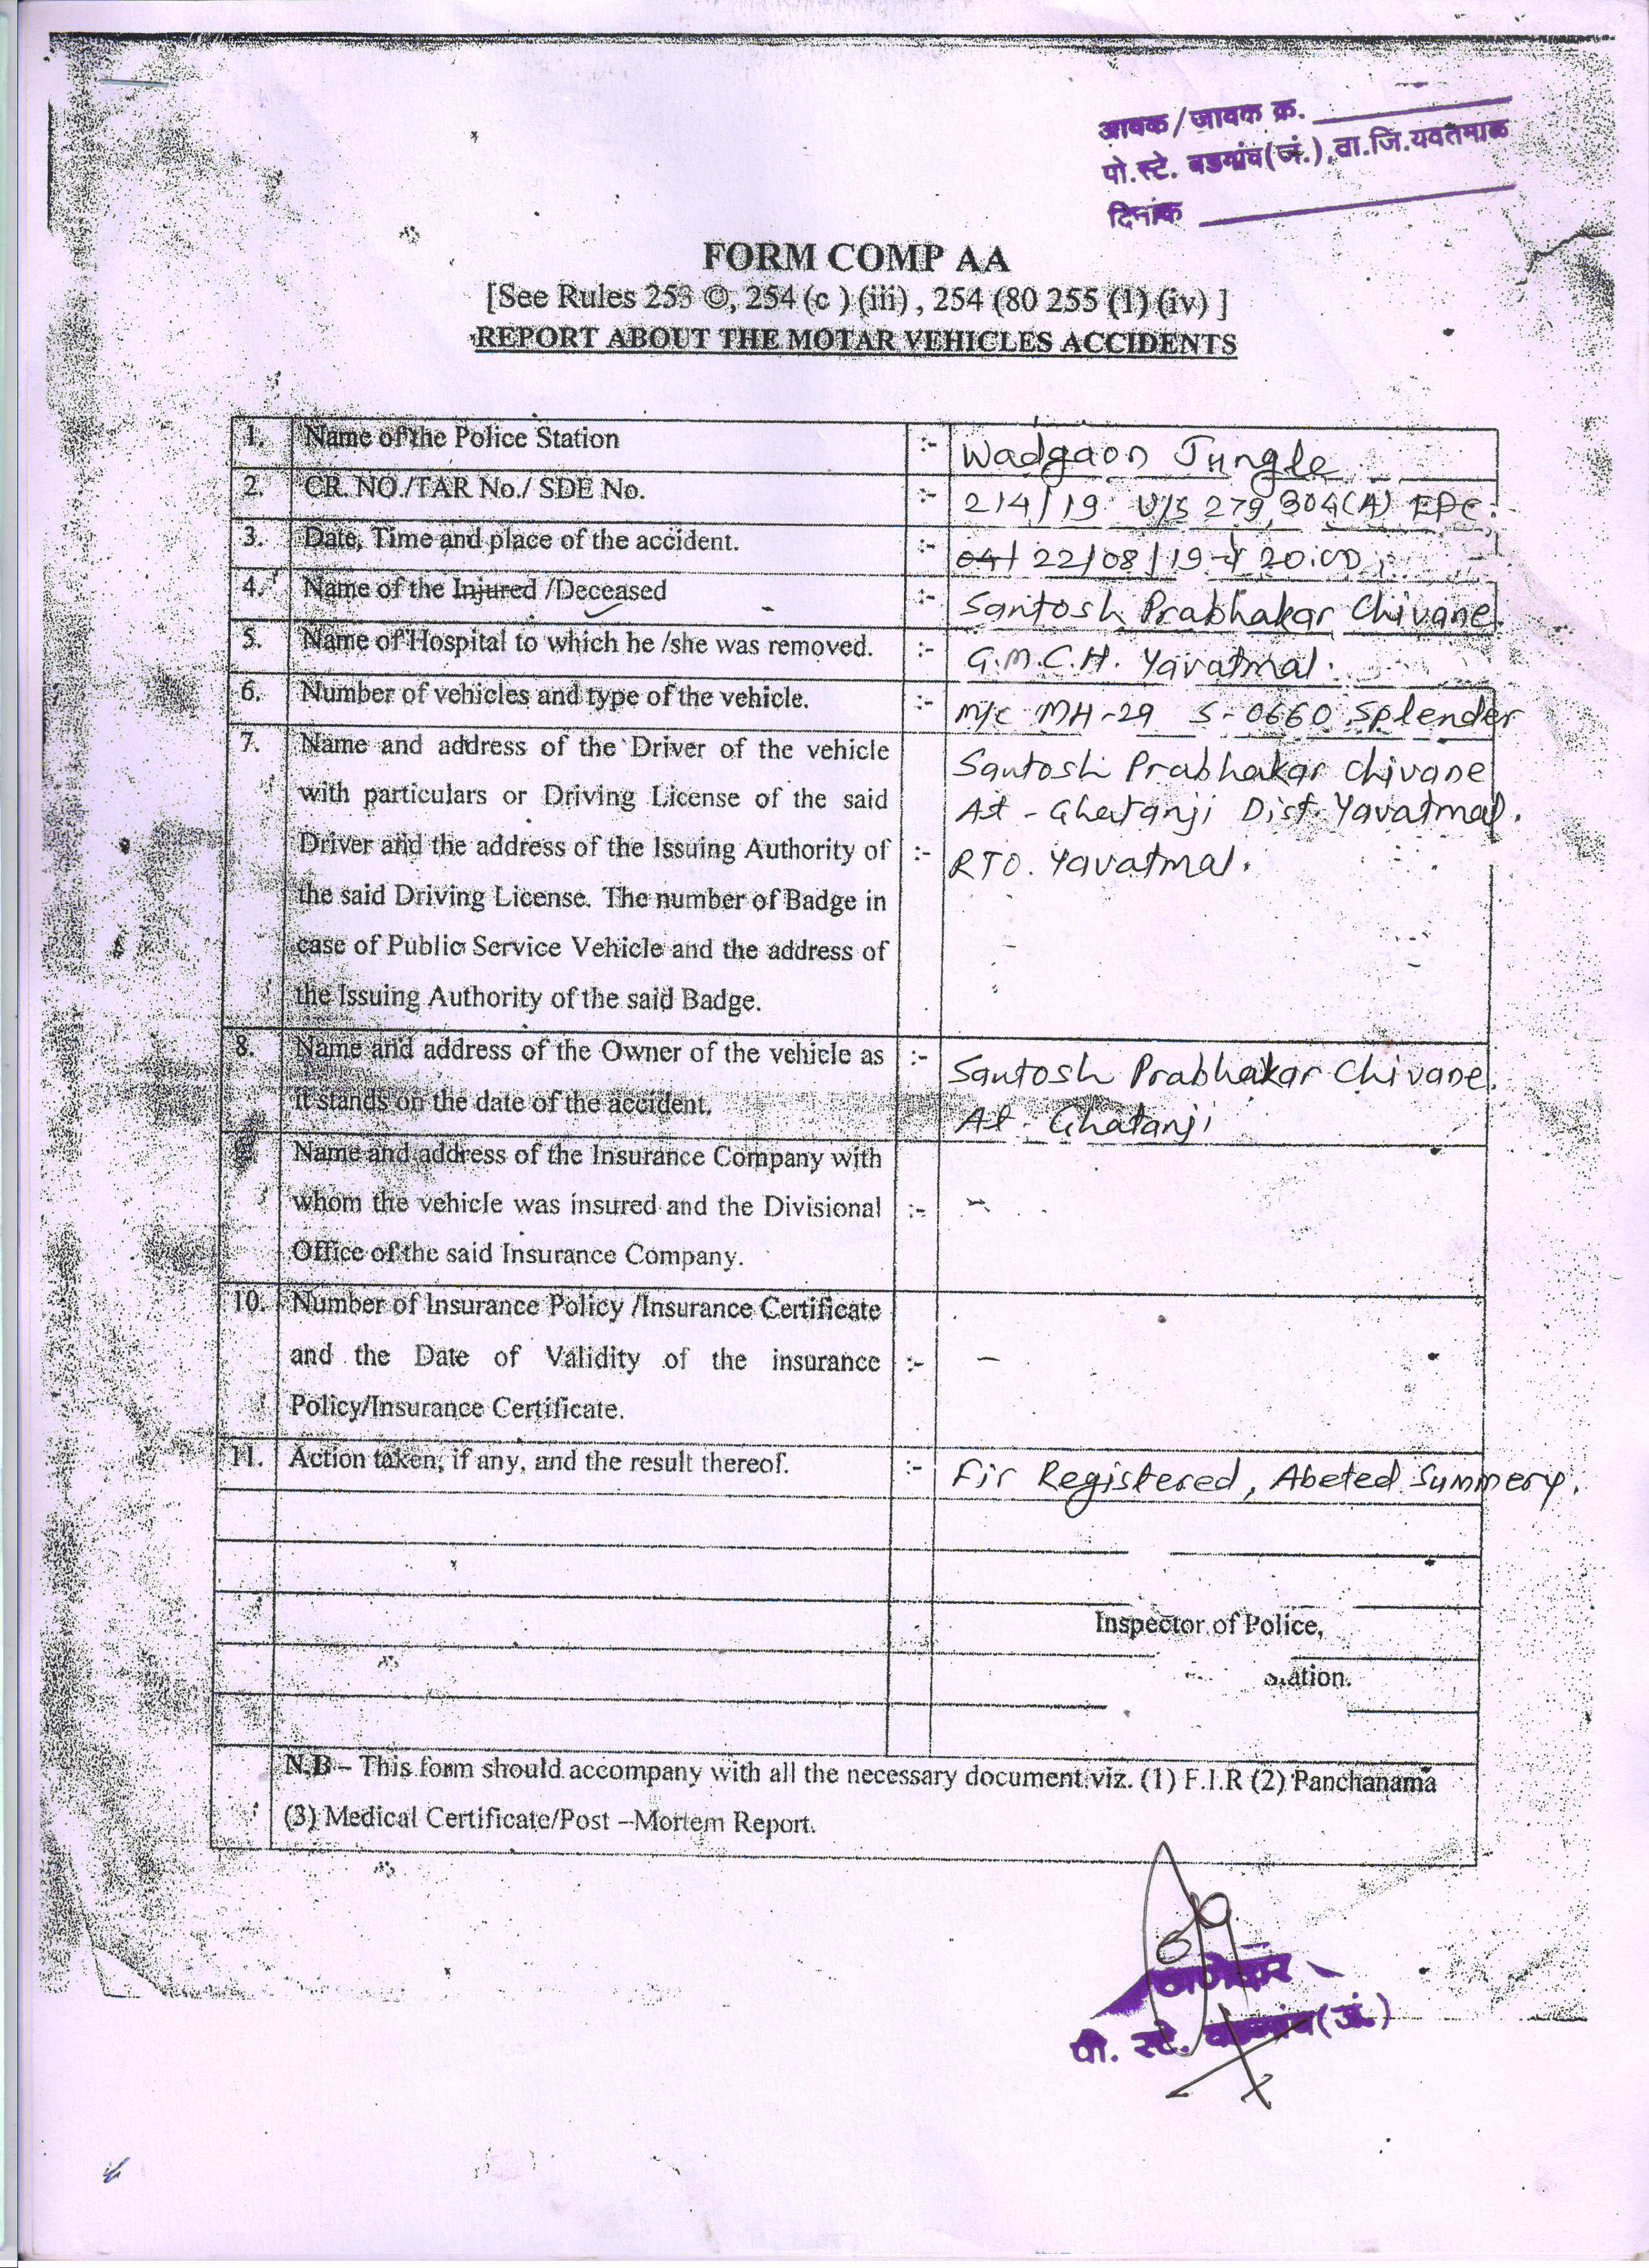 आवक/जावक क्र.
पो.स्टे. वडगांव(जं.),ता.जि.यवतमाळ
दिनांक
FORM COMP AA
[See Rules 253 ©, 254 (c ) (iii) , 254 (80 255 (1) (iv) ]
REPORT ABOUT THE MOTAR VEHICLES ACCIDENTS
1. Name of the Police Station :- Wadgaon Jungle
2. CR. NO./TAR No./ SDE No. :- 214/19 U/S 279, 304(A) IPC.
3. Date, Time and place of the accident. :- 04/ 22/08/19 20.00
4. Name of the Injured /Deceased :- Santosh Prabhakar Chivane.
5. Name of Hospital to which he /she was removed. :- G.M.C.H. Yavatmal.
6. Number of vehicles and type of the vehicle. :- M/c MH-29 S-0660 Splender
7. Name and address of the Driver of the vehicle Santosh Prabhakar Chivane
with particulars or Driving License of the said At - Ghatanji Dist. Yavatmal.
Driver and the address of the Issuing Authority of :- RTO. Yavatmal.
the said Driving License. The number of Badge in
case of Public Service Vehicle and the address of
the Issuing Authority of the said Badge.
8. Name and address of the Owner of the vehicle as :- Santosh Prabhakar Chivane.
it stands on the date of the accident. At - Ghatanji
Name and address of the Insurance Company with
whom the vehicle was insured and the Divisional :- -
Office of the said Insurance Company.
10. Number of Insurance Policy /Insurance Certificate
and the Date of Validity of the insurance :- -
Policy/Insurance Certificate.
11. Action taken, if any, and the result thereof. :- Fir Registered, Abeted Summery.
Inspector of Police,
Station.
N.B – This form should accompany with all the necessary document viz. (1) F.I.R (2) Panchanama
(3) Medical Certificate/Post –Mortem Report.
पो. स्टे. वडगांव(जं.)